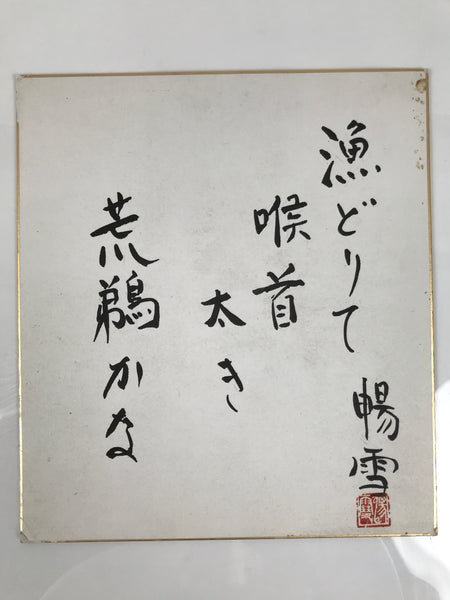 漁どりて
喉首
太き
荒鵜かな
暢雪